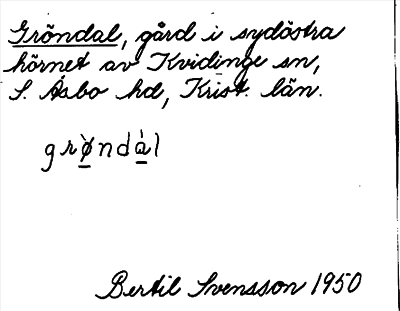 Gröndal, gård i sydöstra
hörnet av Kvidinge sn,
S. Åsbo hd, Krist. län.
grø̠̀ndà̠l
Bertil Svensson 1950